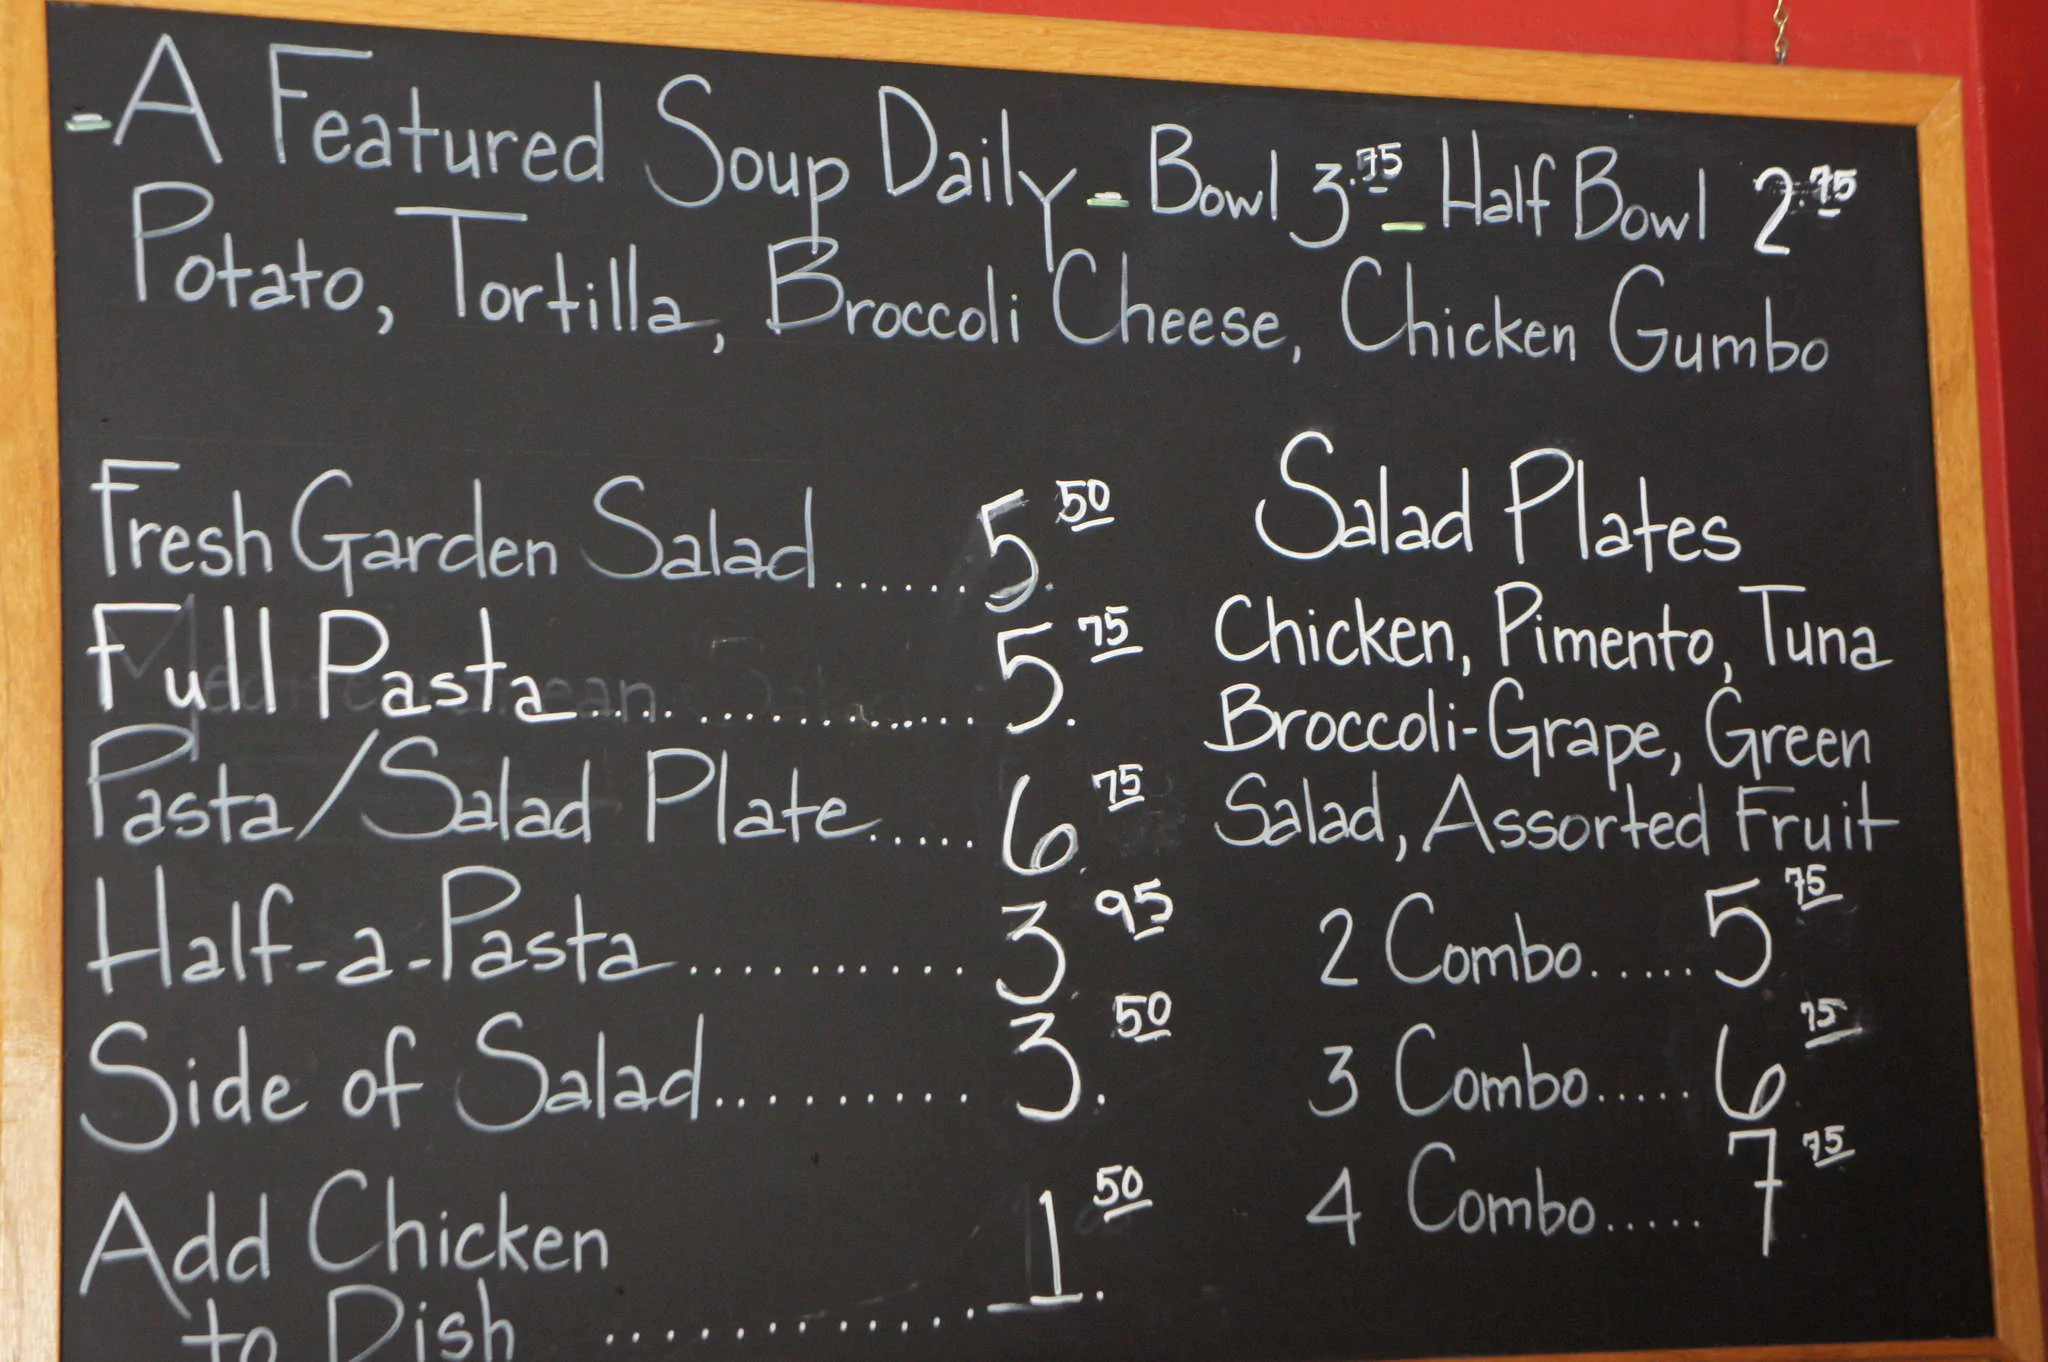 -A Featured Soup Daily - Bowl 3.75 - Half Bowl 2.75
Potato, Tortilla, Broccoli Cheese, Chicken Gumbo
Fresh Garden Salad......5.50
Full Pasta..................5.75
Pasta/Salad Plate.....6.75
Half-a-Pasta...........3.95
Side of Salad..........3.50
Add Chicken
to Dish ..............1.50
Salad Plates
Chicken, Pimento, Tuna
Broccoli-Grape, Green
Salad, Assorted Fruit
2 Combo.....5.75
3 Combo.....6.75
4 Combo.....7.75